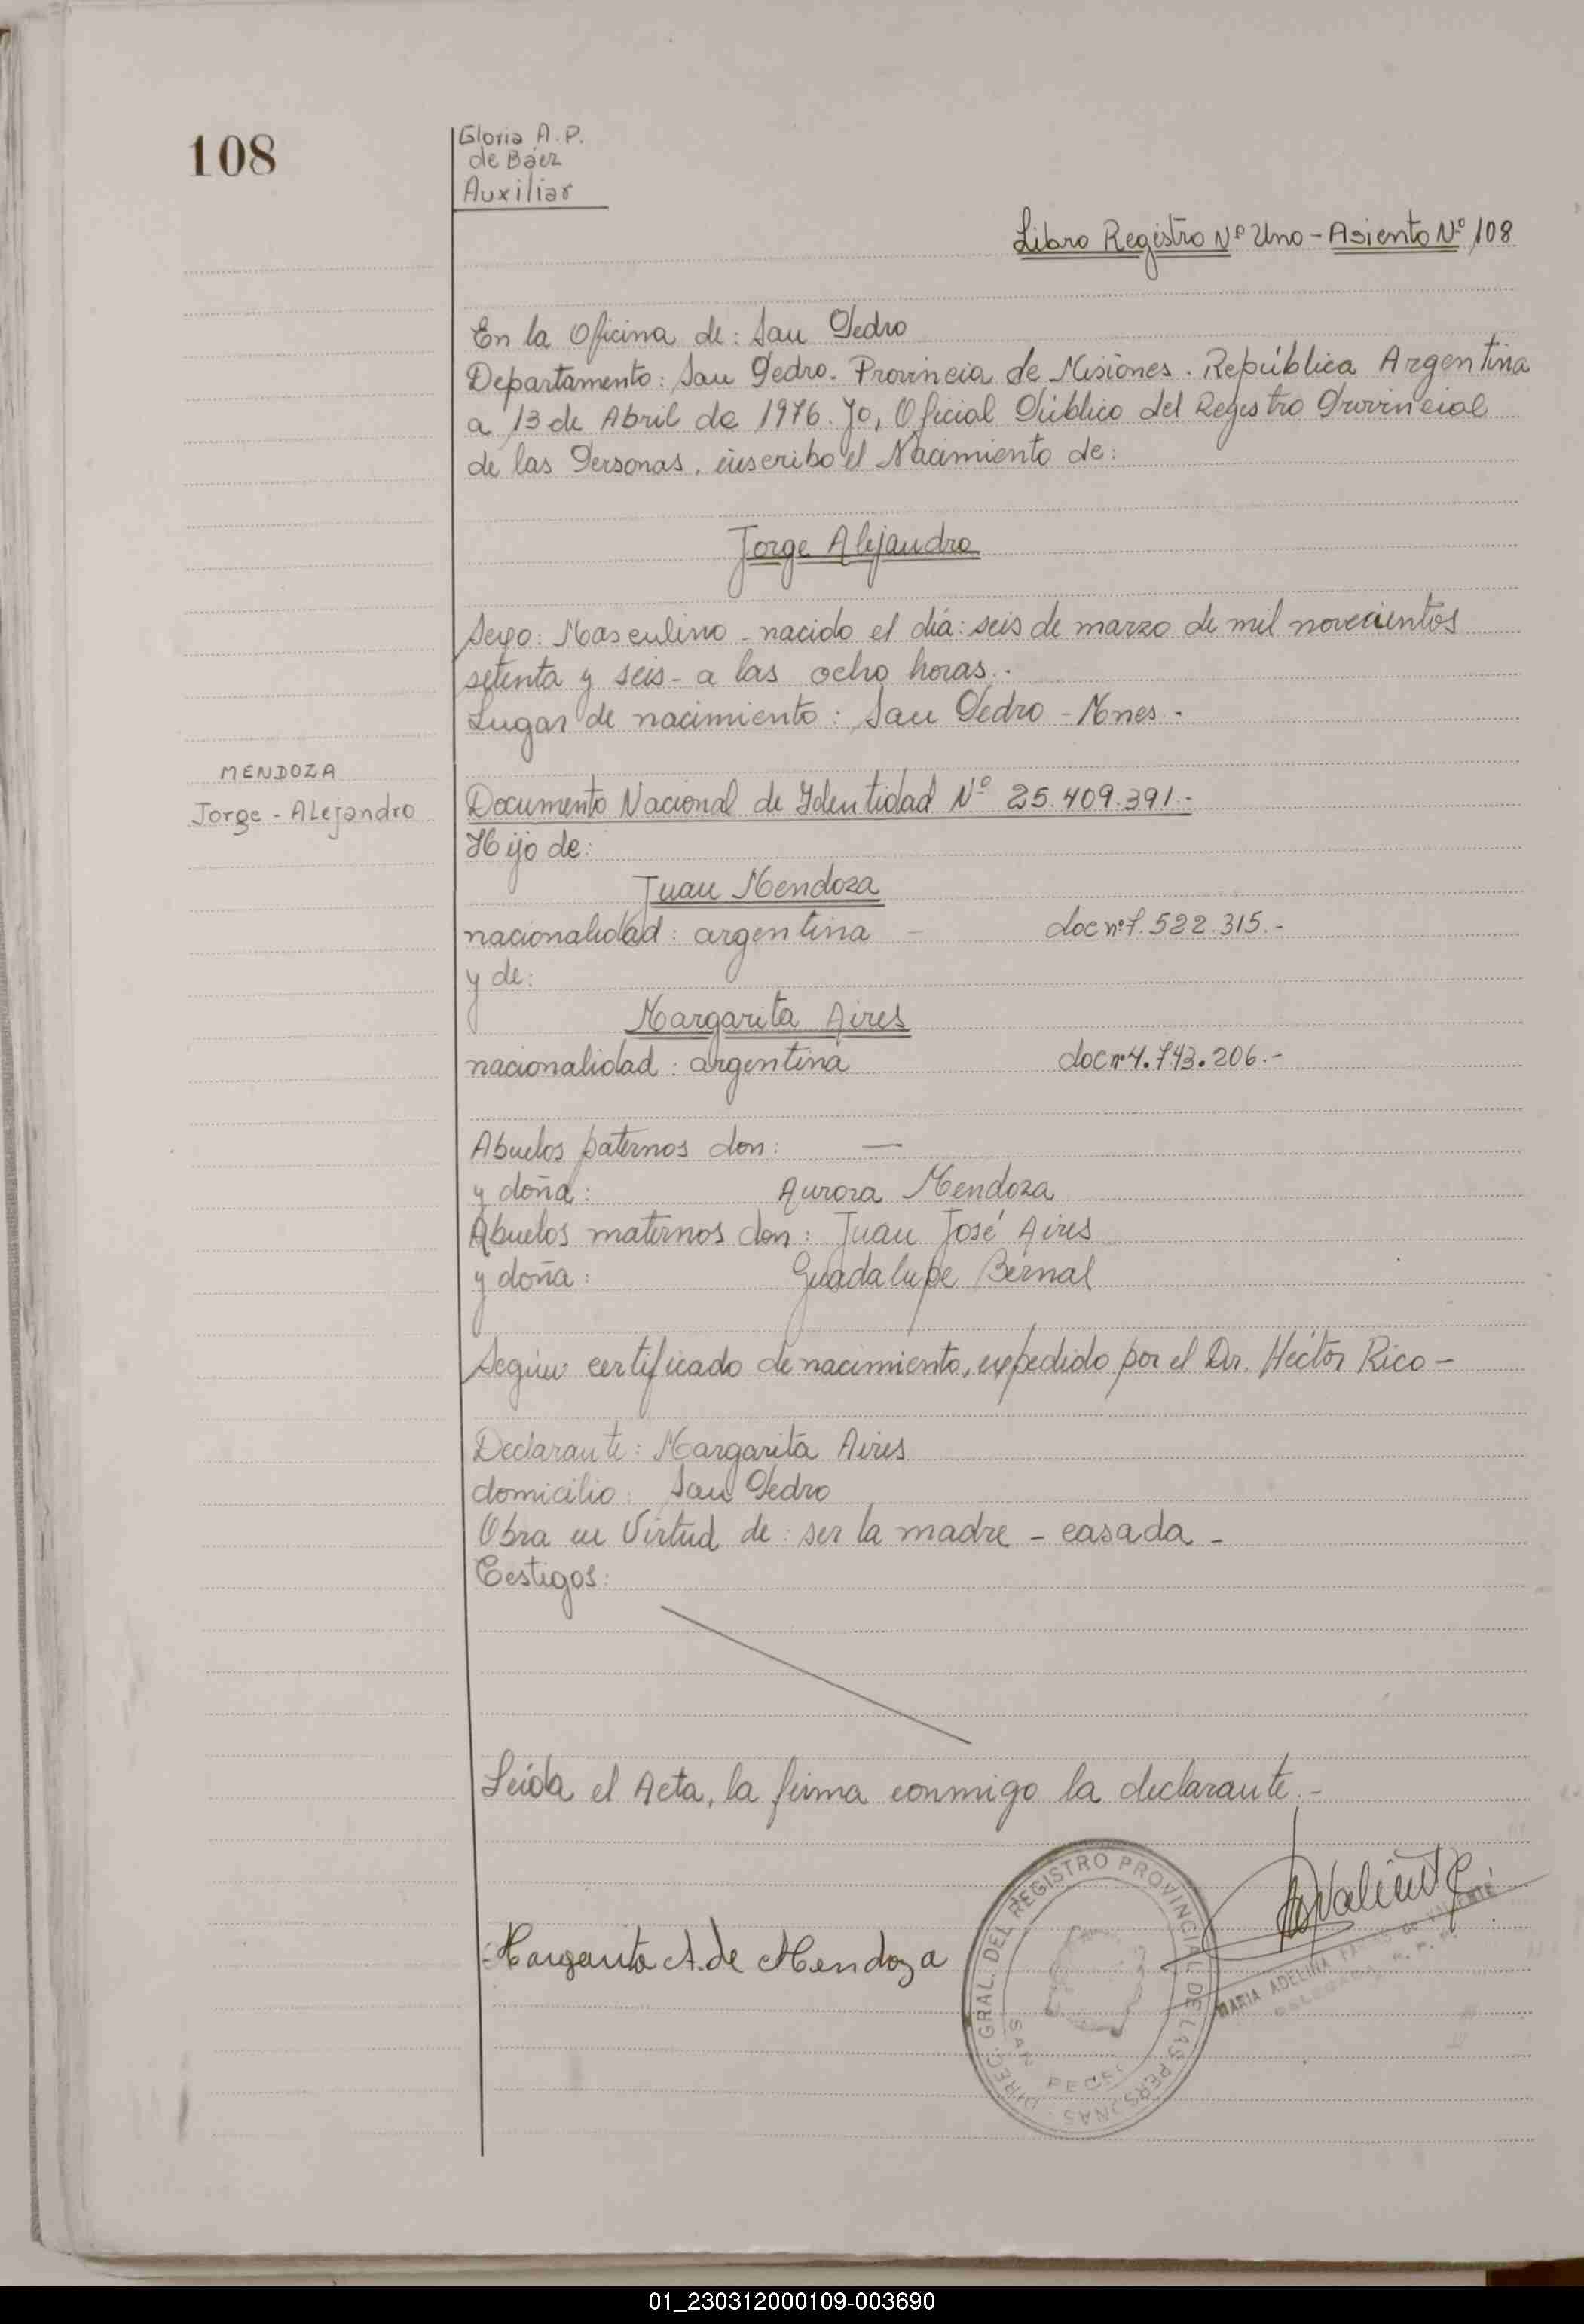 108
Gloria A.P.
de Báez
Auxiliar
Libro Registro Nº Uno - Asiento Nº 108
En la Oficina de: San Pedro
Departamento: San Pedro. Provincia de Misiones. República Argentina
a 13 de Abril de 1976. Yo, Oficial Público del Registro Provincial
de las Personas, inscribo el Nacimiento de:
Jorge Alejandro
Sexo: Masculino - nacido el día: seis de marzo de mil novecientos
setenta y seis - a las ocho horas.-
Lugar de nacimiento: San Pedro - Mnes.-
MENDOZA
Jorge - Alejandro
Documento Nacional de Identidad Nº 25.409.391.-
Hijo de:
Juan Mendoza
nacionalidad: argentina - doc nº 7.522.315.-
y de:
Margarita Aires
nacionalidad: argentina doc nº 4.743.206.-
Abuelos paternos don: —
y doña: Aurora Mendoza
Abuelos maternos don: Juan José Aires
y doña: Guadalupe Bernal
Según certificado de nacimiento, expedido por el Dr. Héctor Rico -
Declarante: Margarita Aires
domicilio: San Pedro
Obra en Virtud de: ser la madre - casada -
Testigos:
Leída el Acta, la firma conmigo la declarante.-
Margarita A. de Mendoza
DIREC. GRAL. DEL REGISTRO PROVINCIAL DE LAS PERSONAS
SAN PEDRO
MARIA ADELINA DE VALIENTE
01_230312000109-003690